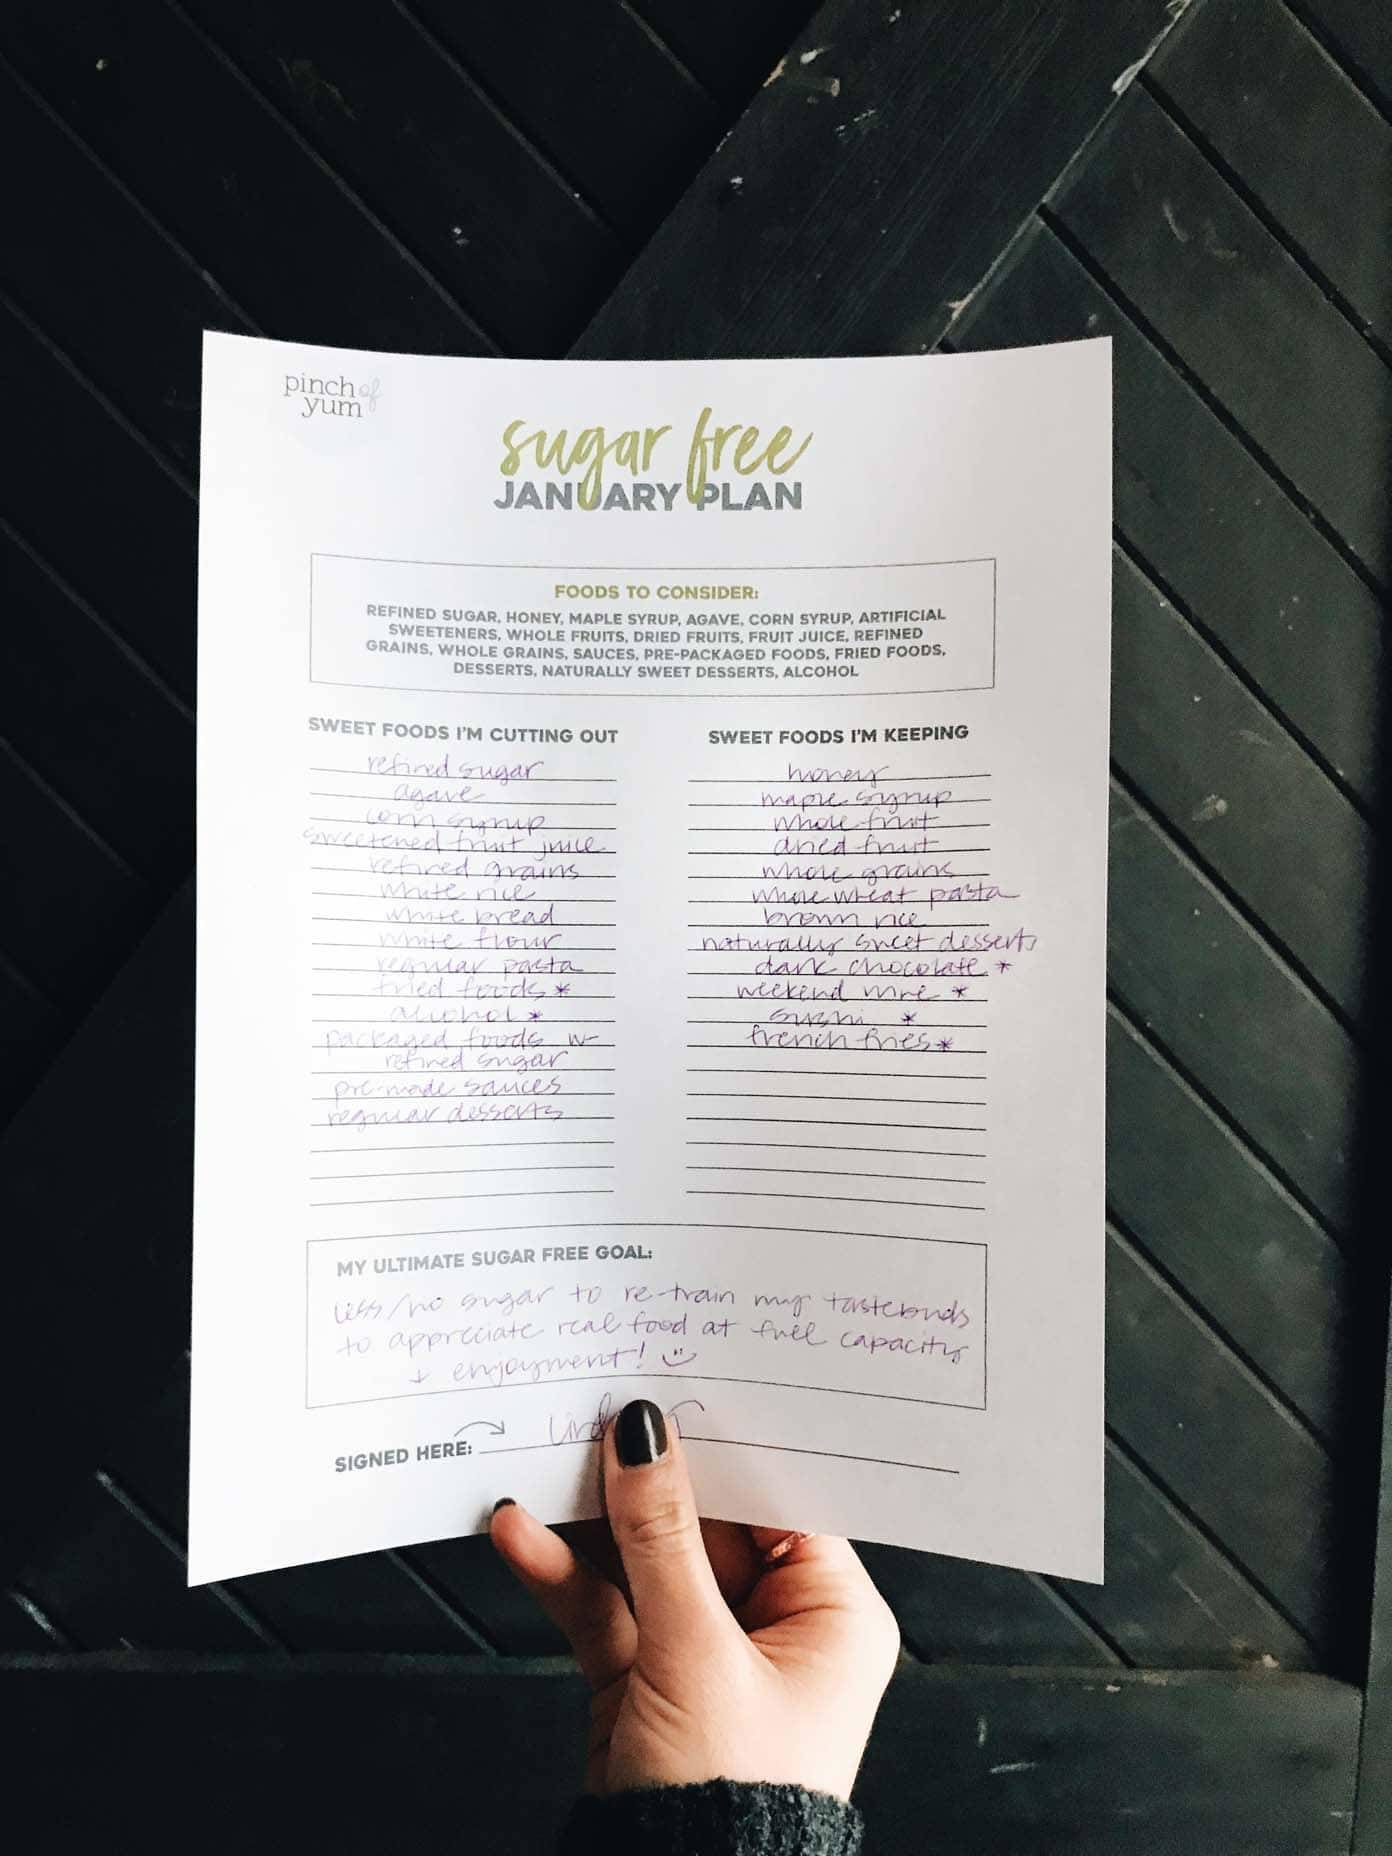 pinch of
yum
sugar free
JANUARY PLAN
FOODS TO CONSIDER:
REFINED SUGAR, HONEY, MAPLE SYRUP, AGAVE, CORN SYRUP, ARTIFICIAL
SWEETENERS, WHOLE FRUITS, DRIED FRUITS, FRUIT JUICE, REFINED
GRAINS, WHOLE GRAINS, SAUCES, PRE-PACKAGED FOODS, FRIED FOODS,
DESSERTS, NATURALLY SWEET DESSERTS, ALCOHOL
SWEET FOODS I'M CUTTING OUT
refined sugar
agave
corn syrup
sweetened fruit juice
refined grains
white rice
white bread
white flour
regular pasta
fried foods *
alcohol *
packaged foods w-
refined sugar
pre-made sauces
regular desserts
SWEET FOODS I'M KEEPING
honey
maple syrup
whole fruit
dried fruit
whole grains
whole wheat pasta
brown rice
naturally sweet desserts
dark chocolate *
weekend wine *
sushi *
french fries *
MY ULTIMATE SUGAR FREE GOAL:
less/no sugar to re-train my tastebuds
to appreciate real food at full capacity
+ enjoyment!
SIGNED HERE: